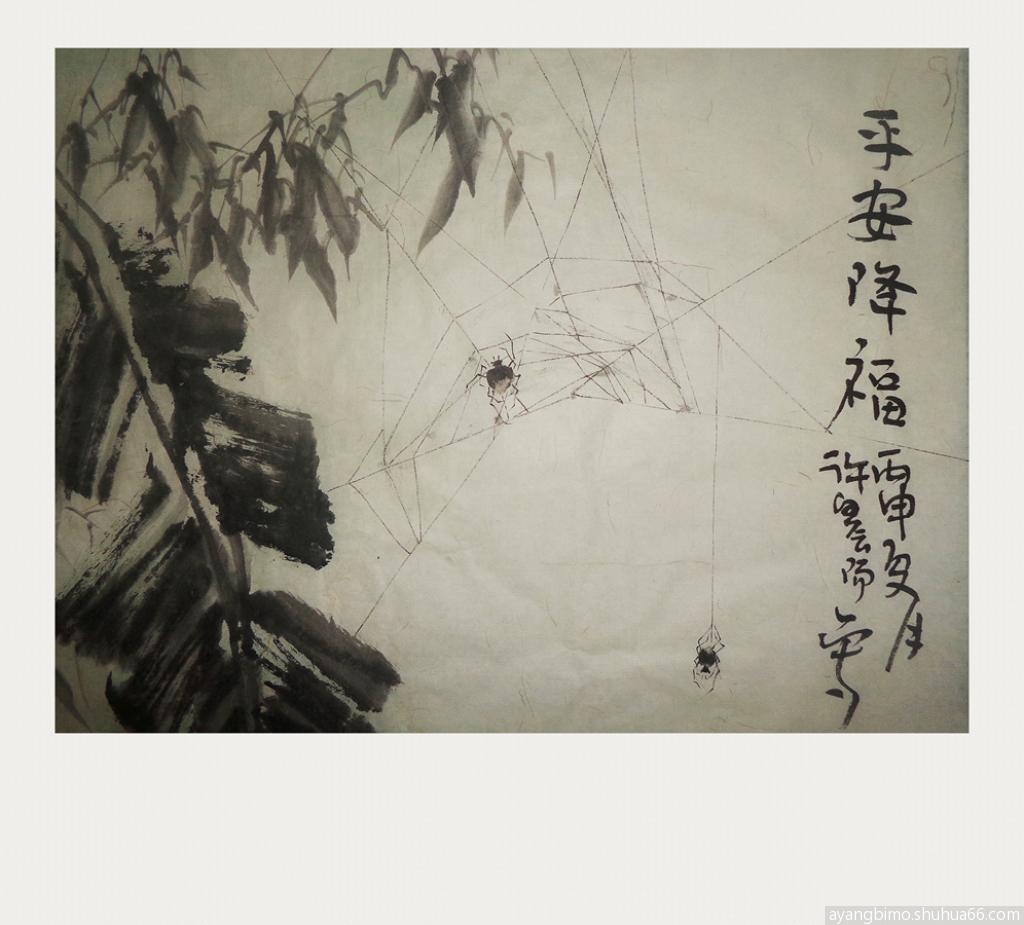 平安降福
丙申夏月
许昙阳写
ayangbimo.shuhua66.com